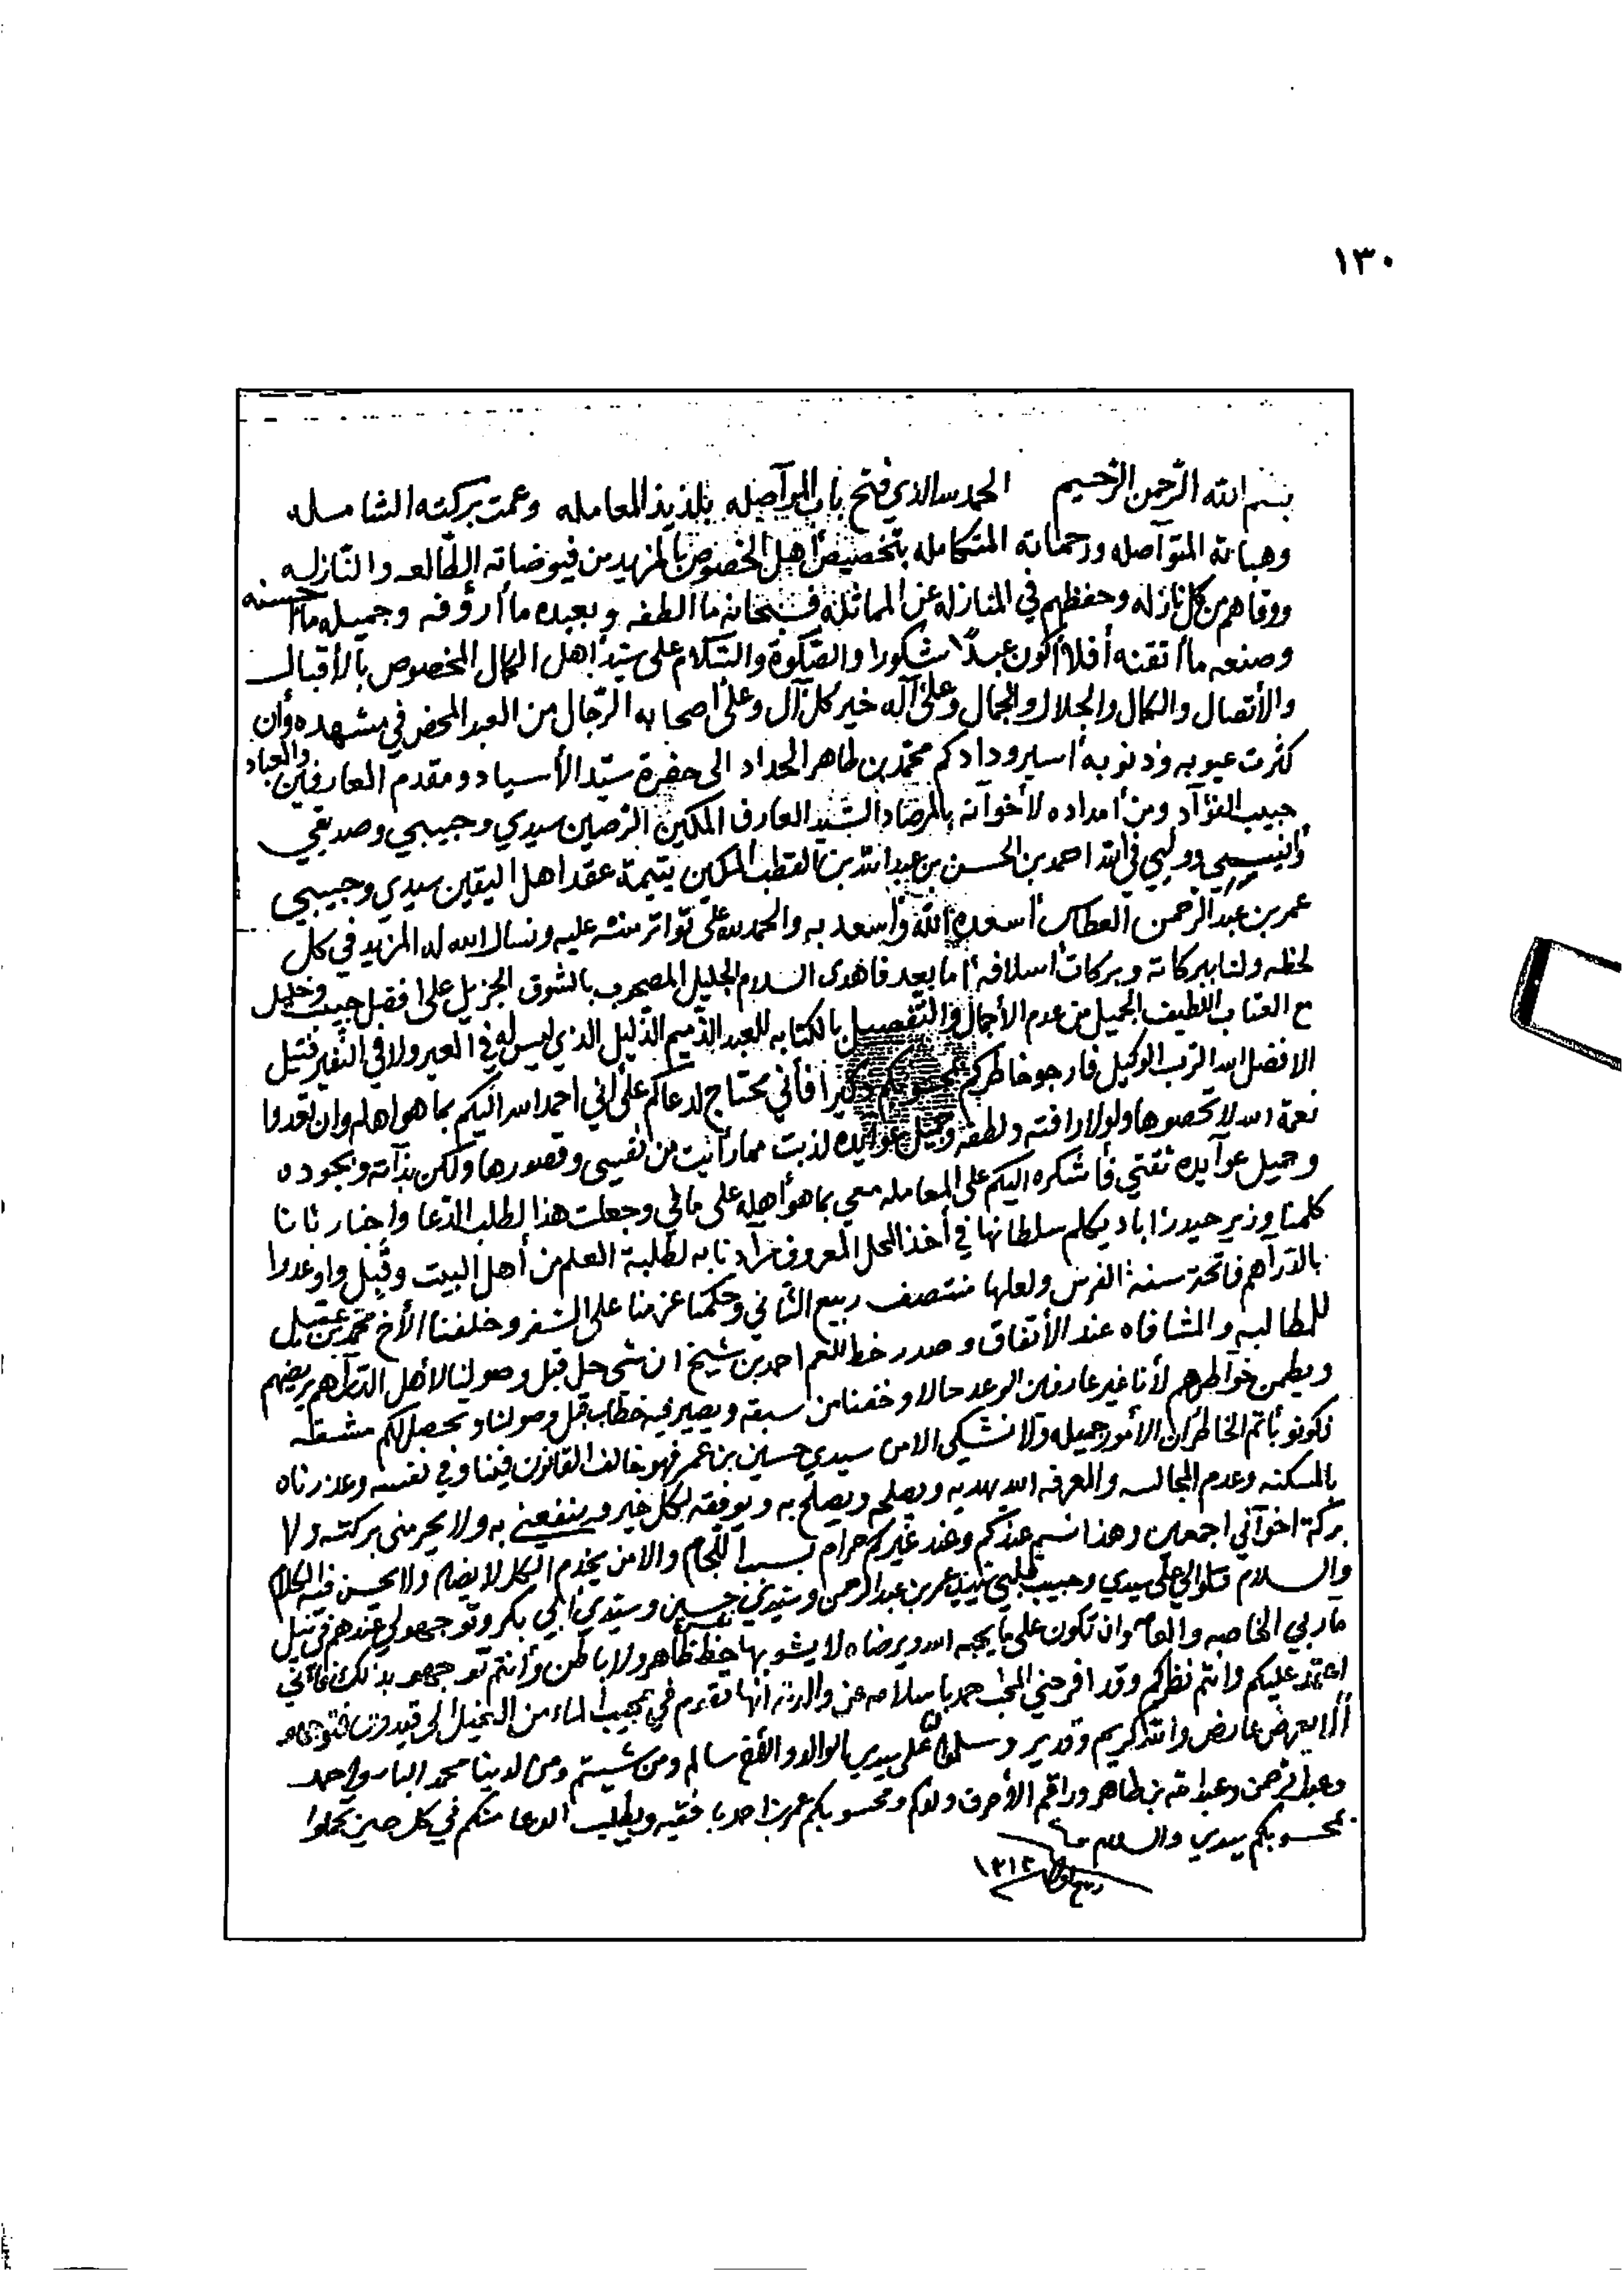 ١٣٠
بسم الله الرحمن الرحيم الحمد لله الذي فتح باب المواصله بلذيذ المعامله وعمت بركته الشامله
وهباته المتواصله ورحماته المتكامله بتخصيص أهل الخصوص بالمزيد من فيوضاته الطالعه والنازله
ووقاهم من كل نازله وحفظهم في المنازله عن المماثله فسبحانه ما الطفه وبعبده ما أرؤفه وجميله ما احسنه
وصنعه ما أتقنه أفلا أكون عبداً شكورا والصلوة والسلام على سيد أهل الكمال المخصوص بالأقبال
والأتصال والكمال والجلال والجمال وعلى آله خير كل آل وعلى أصحابه الرجال من العبد المحض في مشهده وأن
كثرت عيوبه وذنوبه أسير ودادكم محمد بن طاهر الحداد الى حضرة سيد الأسياد ومقدم العارفين والعباد
حبيب الفؤآد ومن أمداده لأخوآنه بالمرصاد السيد العارف المكين الرصين سيدي وحبيبي وصديقي
وأنيسي وولي في الله احمد بن الحسن بن عبد الله بن القطب المكين يتيمة عقد اهل اليقين سيدي وحبيبي
عمر بن عبد الرحمن العطاس أسعده الله وأسعد به والحمد لله على تواتر مننه عليه ونسال الله له المزيد في كل
لحظه ولنا ببركاته وبركات أسلافه أما بعد فاهدى السلام الجليل المصحوب بالشوق الجزيل على افضل حبيب وخليل
مع العتاب اللطيف الجميل من عدم الأجمال والتفصيل بالكتابه للعبد الذميم الذليل الذي ليس له في العير ولا في النفير فتيل
الا فضل الله الرب الوكيل فارجو خاطركم بمحسوبكم كثيرا فأني محتاج لدعاكم على أني احمد الله اليكم بما هو اهله وان تعدوا
نعمة الله لا تحصوها ولولا رافته ولطفه وجميل عوايده لذبت مما رأيت من نفسي وقصورها ولكن بذآته وبجوده
وجميل عوآيده ثقتي فأشكره اليكم على المعامله معي بما هو أهله على ما في وجعلت هذا لطلب الدعا واخبار ثانا
كلمنا وزير حيدرآباد يكلم سلطانها في أخذ المحل المعروف مرادنا به لطلبة العلم من أهل البيت وقبل واوعدوا
بالدرآهم فاتحة سنة الفرس ولعلها منتصف ربيع الثاني وحكمنا عزمنا على السفر وخلفنا الأخ محمد بن عقيل
للمطالبه والمشافاه عند الأتفاق وصدر خط للعم احمد بن شيخ ان شي حل قبل وصولنا لأهل الدرآهم يرضيهم
ويطمن خواطرهم لأنا غير عارفين الوعد حالا وخفنا من سبقه ويصير فيه خطاب قبل وصولنا ويحصل لكم مشقه
فكونو بأتم الخاطر ان الأمور جميله ولا نشكي الا من سيدي حسين بن عمر فهو خالف القانون فينا وفي نفسه وعذرناه
بالمسكنه وعدم المجالسه والمعرفه الله يهديه ويصلحه ويصلح به ويوفقه لكل خير وينفعني به ولا يحرمني بركته ولا
بركة اخوآني اجمعين وهذا عندكم وعند غيركم حرام والا من يخدم الكل لا يضام ولا يحسن فيه الكلام
والسلام سلموا لي على سيدي وحبيب قلبي عمر بن عبد الرحمن وسيدي حسين وسيدي أبي بكر وتوجهو لي عندهم في نيل
مآربي الخاصه والعامه وان تكون على ما يحبه الله ويرضاه لا يشوبها حظ نفس ظاهر ولا باطن وأنتم توجهو بذلك فأني
اعتمد عليكم وأنتم نظركم وقد افرحني المحب
ألا يعرض عارض والله كريم وقدير وسلموا لنا على سيدي الوالد والأخ سالم ومن شيتم ومن لدينا محمد البار واحمد
وعبد الرحمن وعبد الله بن طاهر وراقم الأحرف ولدكم ومحسوبكم عمر بن احمد با فقيه ويطلب الدعا منكم في كل حين تحملوا
بمحسوبكم سيدي والسلام
ربيع اول ١٣١٣